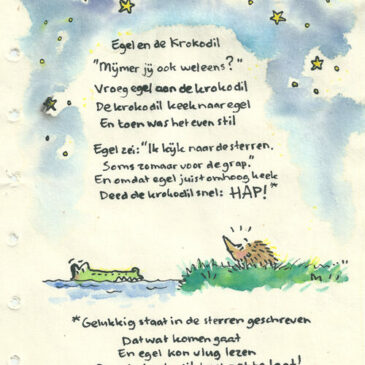 Egel en de Krokodil
"Mijmer jij ook weleens?"
Vroeg egel aan de krokodil
De krokodil keek naar egel
En toen was het even stil
Egel zei: "Ik kijk naar de sterren.
Soms zomaar voor de grap."
En omdat egel juist omhoog keek
Deed de krokodil snel: HAP!*
*Gelukkig staat in de sterren geschreven
Dat wat komen gaat
En egel kon vlug lezen